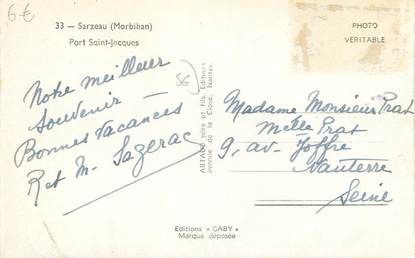 6€
33 — Sarzeau (Morbihan)
Port Saint-Jacques
PHOTO
VERITABLE
Notre meilleur
souvenir
Bonnes vacances
R et M. Sazerac
56
ARTAUD père et fils, Éditeurs
avenue de la Close, Nantes
Madame Monsieur Prat
Melle Prat
9, av. Joffre
Nanterre
Seine
Editions « GABY »
Marque déposée